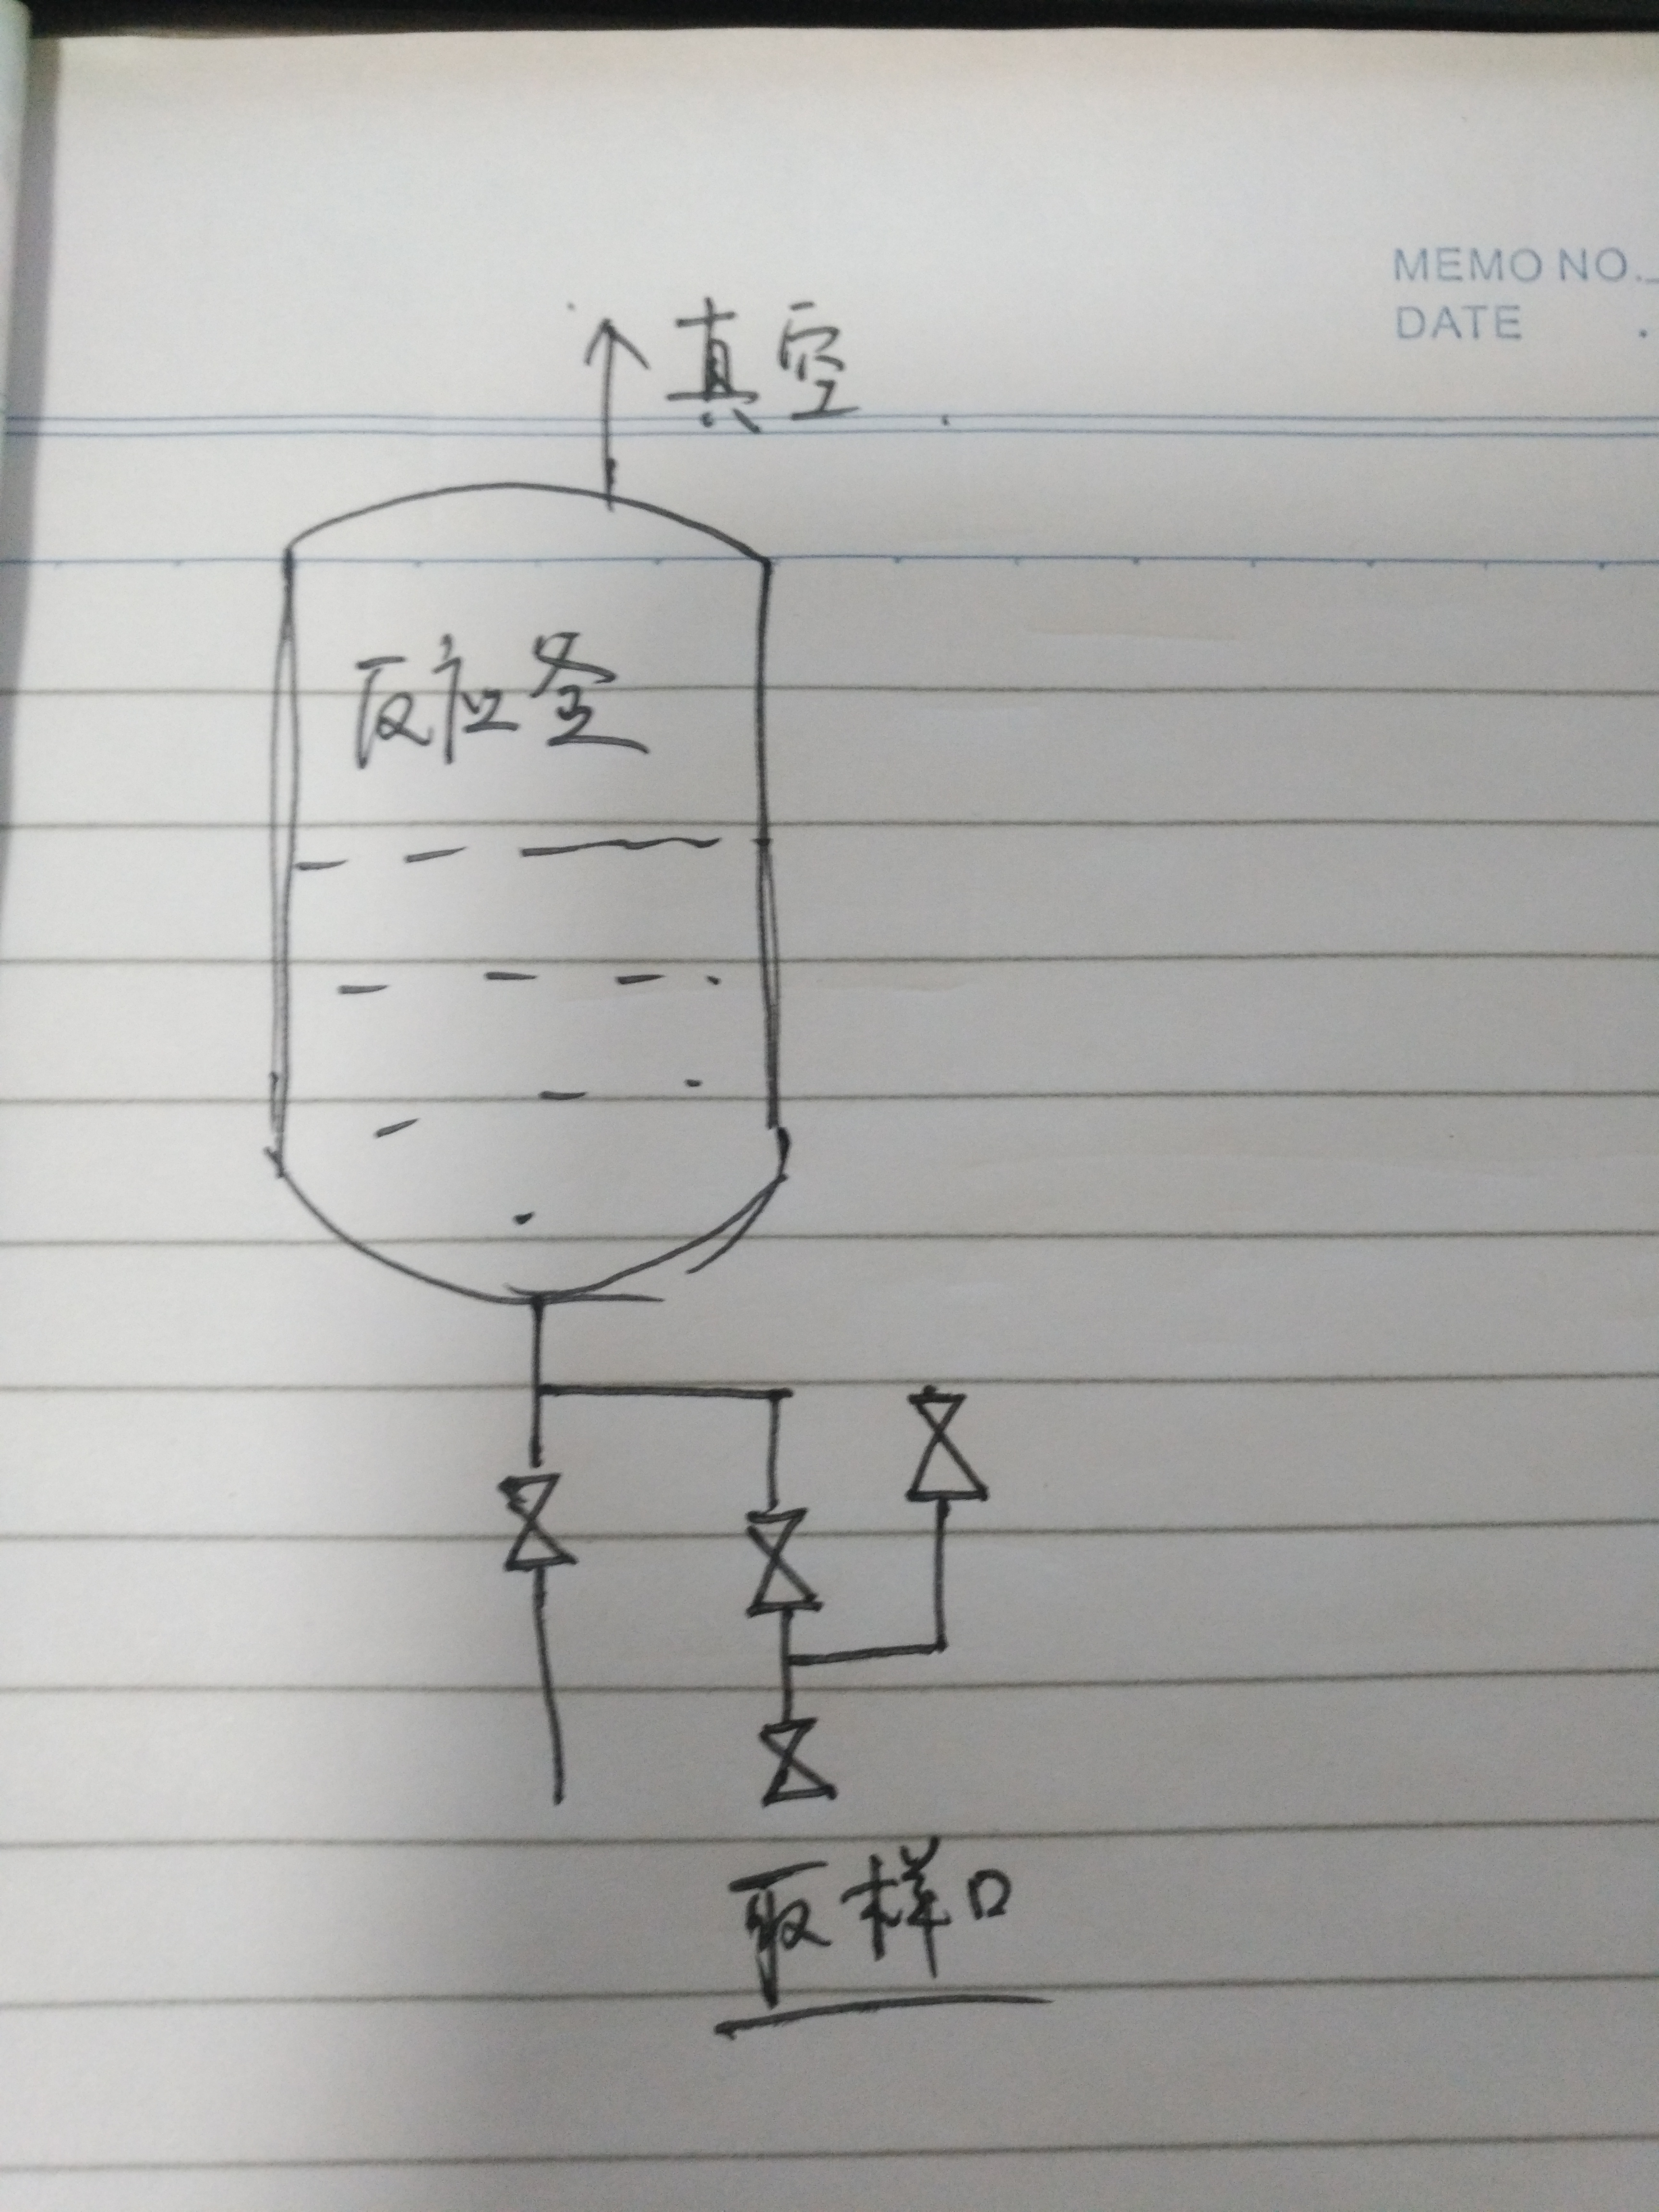 MEMO NO.
DATE
真空
反应釜
取样口